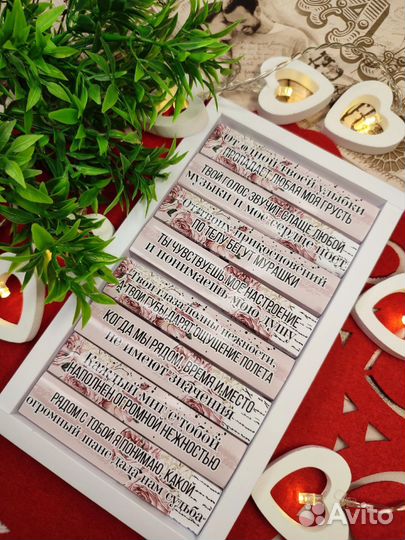 от одной твоей улыбки
пропадает любая моя грусть
твой голос звучит слаще любой
музыки и мое сердце поет
от твоих прикосновений
по телу бегут мурашки
ты чувствуешь мое настроение
и понимаешь мою душу
твои глаза полны нежности,
а твои губы дарят ощущение полета
когда мы рядом, время и место
не имеют значения
каждый миг с тобой
наполнен огромной нежностью
рядом с тобой я понимаю, какой
огромный шанс дала нам судьба
Avito